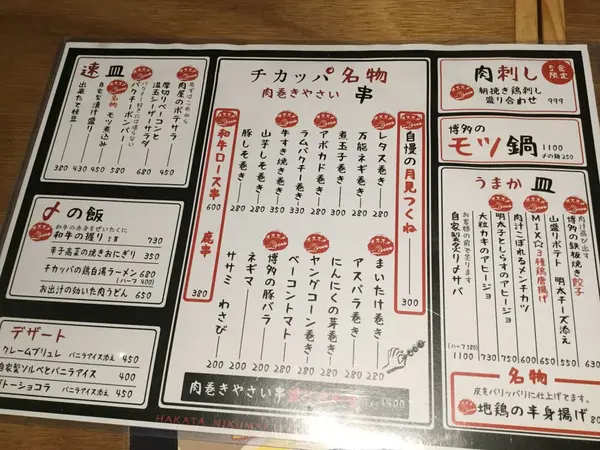 速皿
まずはこれから
肉屋のポテサラ
厚切りベーコンと
温玉シーザーサラダ
パクチーボンバー
名物 モツ煮込み
自家製漬け盛り
出来たて枝豆
380 430 450 580 480 450
〆の飯
和牛の赤身をぜいたくに
和牛の握り 730
辛子高菜の焼きおにぎり 350
チカッパの鶏白湯ラーメン 680
(ハーフ 400)
お出汁の効いた肉うどん 650
デザート
クレームブリュレ バニラアイス添え 450
自家製ソルベとバニラアイス 400
ガトーショコラ バニラアイス添え 450
チカッパ名物
肉巻きやさい 串
自慢の月見つくね 300
レタス巻き 280
万能ネギ巻き 280
煮玉子巻き 280
アボカド巻き 280
ラムパクチー巻き 380
牛すき焼き巻き 350
山芋しそ巻き 280
豚しそ巻き 280
和牛ロース串 600
まいたけ巻き 280
アスパラ巻き 280
にんにくの芽巻き 280
ヤングコーン巻き 280
ベーコントマト 280
博多の豚バラ 200
ネギマ 200
ササミ わさび 200
鹿串 380
肉巻きやさい串
1,400
肉刺し
5食限定
朝挽き鶏刺し
盛り合わせ 999
博多の
モツ鍋 1100
〆の麺 250
うまか皿
肉汁飛び出す
博多の鉄板焼き餃子 530
山盛りポテト 明太チーズ添え 630
MIX☆3種鶏唐揚げ 550
肉汁こぼれるメンチカツ 600
明太子とらすのアヒージョ 750
大粒カキのアヒージョ 730
お客様の前で炙ります
自家製炙り〆サバ 1100
(ハーフ 580)
名物
皮をパリッパリに仕上げてます。
地鶏の半身揚げ